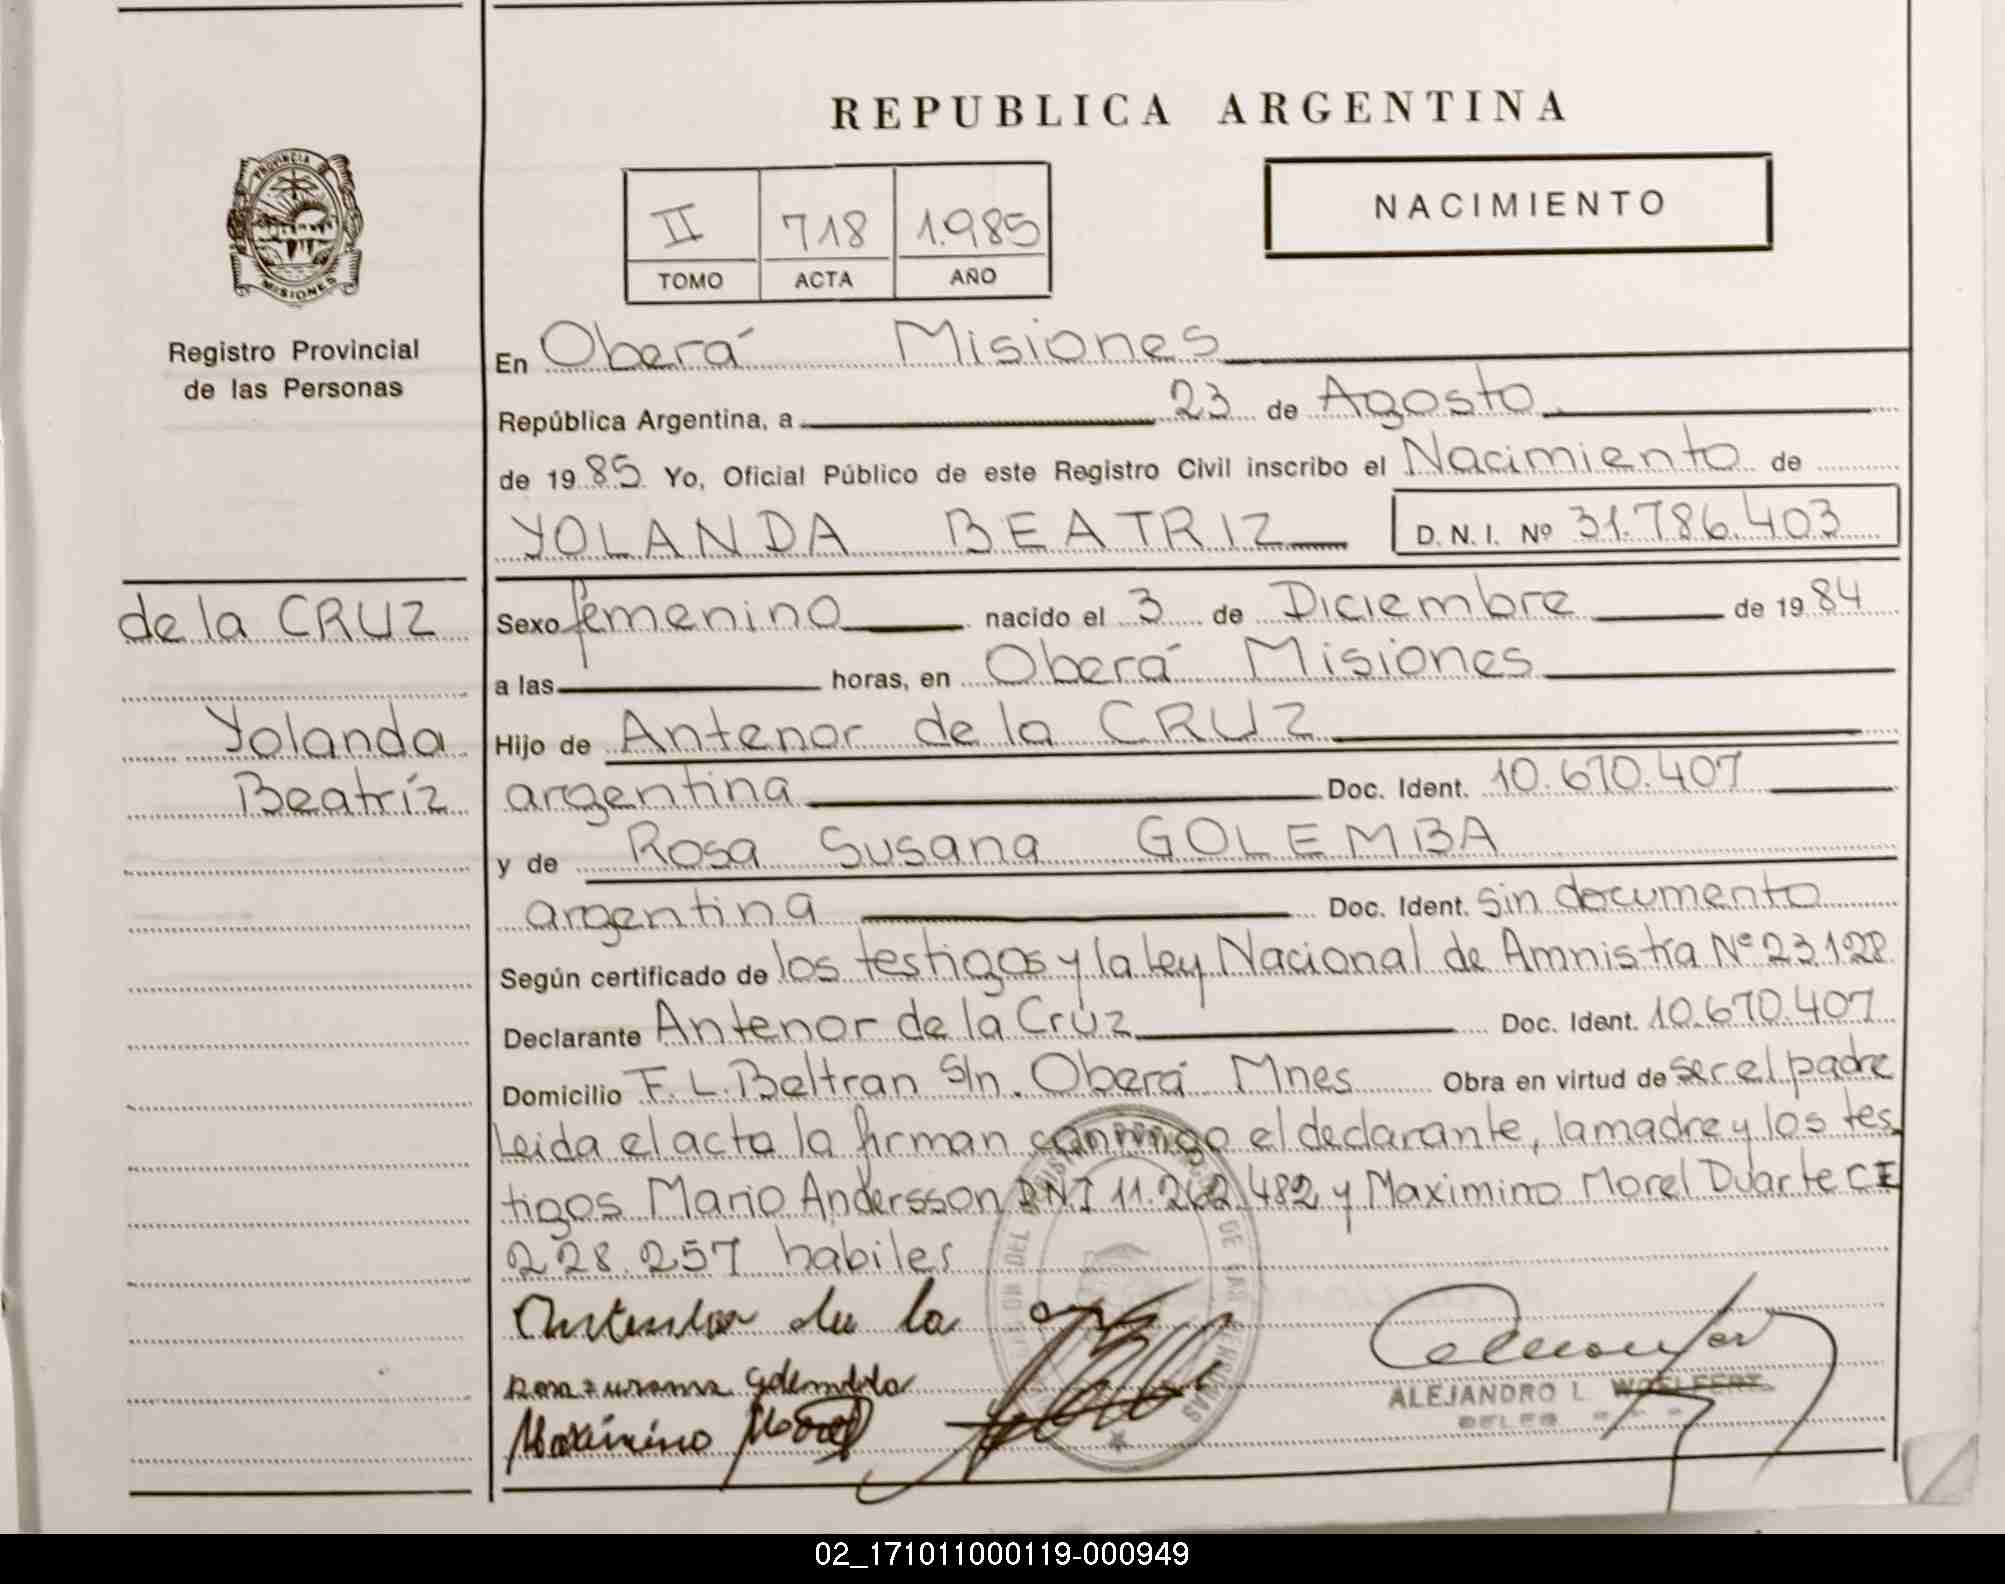 REPUBLICA ARGENTINA
PROVINCIA
MISIONES
Registro Provincial
de las Personas
II 718 1.985
TOMO ACTA AÑO
NACIMIENTO
En Oberá Misiones
República Argentina, a 23 de Agosto
de 1985 Yo, Oficial Público de este Registro Civil inscribo el Nacimiento de
YOLANDA BEATRIZ D.N.I. Nº 31.786.403
de la CRUZ
Yolanda
Beatríz
Sexo femenino nacido el 3 de Diciembre de 1984
a las horas, en Oberá Misiones
Hijo de Antenor de la CRUZ
argentina Doc. Ident. 10.670.407
y de Rosa Susana GOLEMBA
argentina Doc. Ident. sin documento
Según certificado de los testigos y la Ley Nacional de Amnistía Nº 23.128
Declarante Antenor de la Crúz Doc. Ident. 10.670.407
Domicilio F. L. Beltran S/n. Oberá Mnes Obra en virtud de ser el padre
Leida el acta la firman conmigo el declarante, la madre y los tes
tigos Mario Andersson DNI 11.262.482 y Maximino Morel Duarte CI
228.257 habiles
de la
Golemba
Maximino Morel
ALEJANDRO L. WOELFERT
02_171011000119-000949